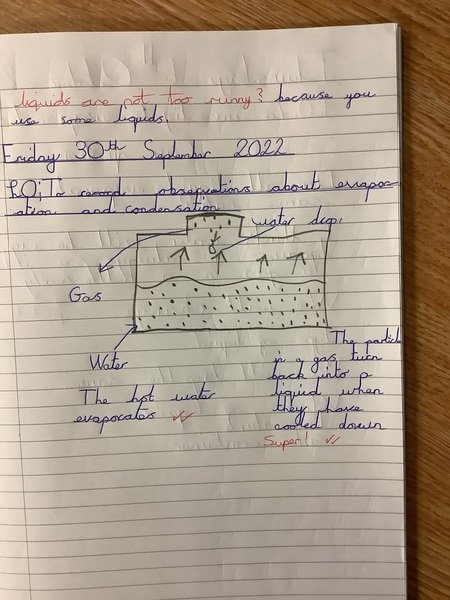 liquids are not too runny? because you
use some liquids.
Friday 30th September 2022
LO: To record observations about evapor-
ation and condensation
water drop.
Gas
Water
The hot water
evaporates
The particles
in a gas turn
back into a
liquid when
they have
cooled down
Super!